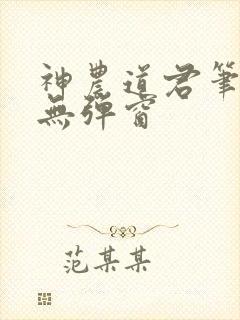 神農道君筆
無彈窗
范某某